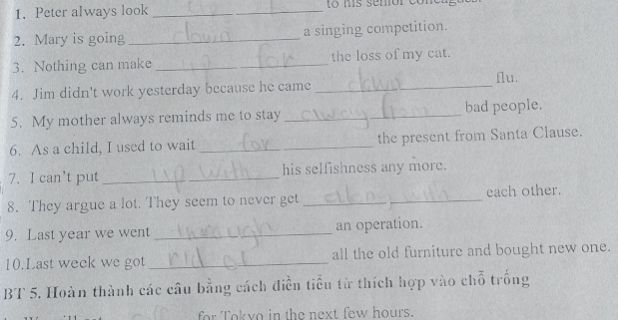 1. Peter always look ________ to his senior
2. Mary is going down a singing competition.
3. Nothing can make up for the loss of my cat.
4. Jim didn't work yesterday because he came down flu.
5. My mother always reminds me to stay away from bad people.
6. As a child, I used to wait for the present from Santa Clause.
7. I can't put up with his selfishness any more.
8. They argue a lot. They seem to never get along with each other.
9. Last year we went through an operation.
10.Last week we got rid of all the old furniture and bought new one.
BT 5. Hoàn thành các câu bằng cách điền tiểu từ thích hợp vào chỗ trống
for Tokyo in the next few hours.